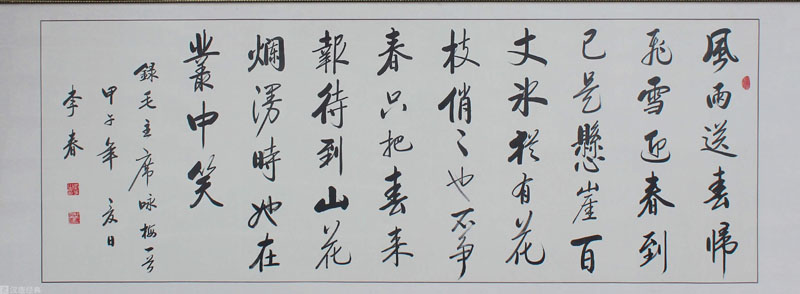 風雨送春歸
飛雪迎春到
已是懸崖百
丈冰猶有花
枝俏〻也不争
春只把春来
報待到山花
爛漫時她在
叢中笑
録毛主席咏梅一首
甲午年夏日
李春